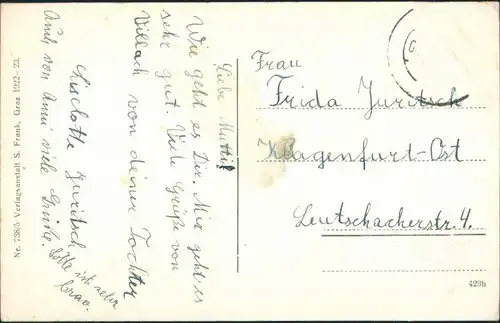 Liebe Mutti!
Wie geht es Dir. Mir geht es
sehr gut. Viele Grüße von
Villach von deiner Tochter
Liselotte Juritsch
Auch von Anni viele Grüße.
Lotte ist sehr
brav.
Nr. 7385 Verlagsanstalt S. Frank, Graz 1922-23.
Frau
Frida Juritsch
Klagenfurt-Ost
Leutschacherstr. 4.
428b